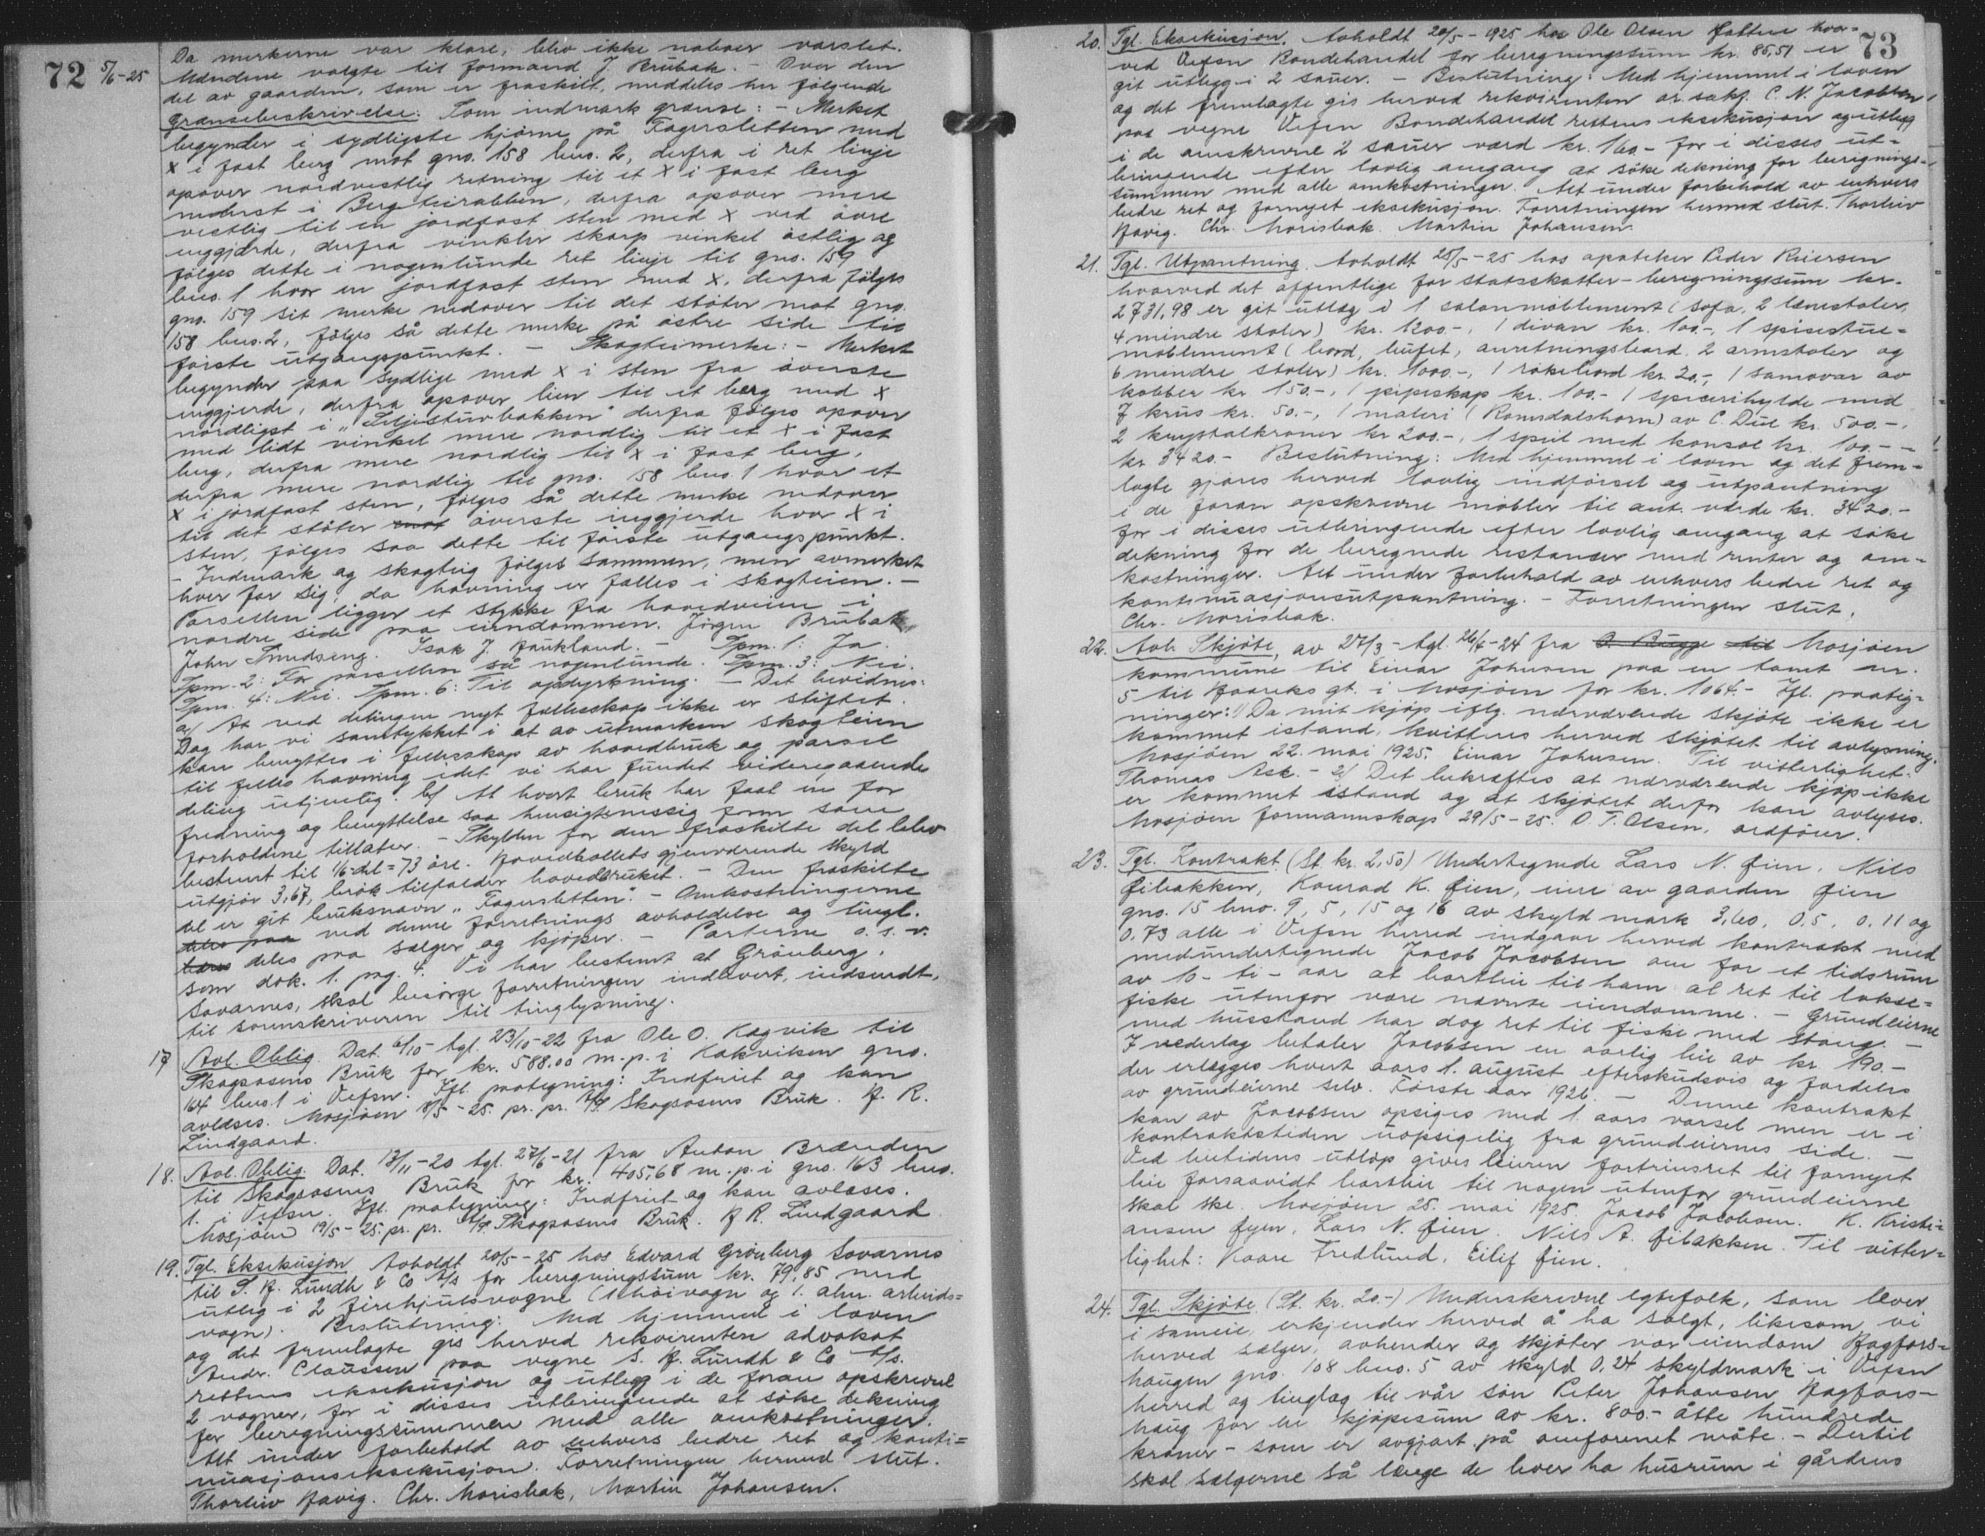 72 5/6-25
Da merkerne var klare, blev ikke naboer varslet.
Mændene valgte til formand J Brubak. - Over den
del av gaarden, som er fraskilt, meddeles her følgende
Grænsebeskrivelse: Som indmark grænse: - Merket
begynder i sydligste hjørne på Fagersletten med
X i fast berg mot gno. 158 bno. 2, derfra i ret linje
opover nordvestlig retning til et X i fast berg
nederst i Bergteirabben, derfra opover mere
vestlig til en jordfast sten med X ved øvre
inggjærde, derfra vinkler skarp vinkel østlig og
følges dette i nogenlunde ret linje til gno. 159
bno. 1 hvor en jordfast sten med X, derfra følges
gno. 159 sit merke nedover til det støter mot gno.
158 bno. 2, følges så dette merke på østre side til
første utgangspunkt. - Skogteimerke: - Merket
begynder paa sydlige med X i sten fra øverste
inggjerde, derfra opover lien til et berg med X
nordligst i " " derfra følges opover
med lidt vinkel mere nordlig til et X i fast
berg, derfra mere nordlig til X i fast berg,
derfra mere nordlig til gno. 58 bno 1 hvor et
X i jordfast sten, følges så dette merke nedover
til det støter mot øverste inggjerde hvor X i
sten, følges saa dette til første utgangspunkt.
- Indmark og skogteig følges sammen, men avmerket
hver for sig, da havning er fælles i skogteien. -
Parsellen ligger et stykke fra hovedveien i
nordre side paa eiendommen. Jørgen Brubak,
John Smedseng. Isak J. Aukland. - Spm. 1: Ja.
Spm. 2: For parsellen så nogenlunde. Spm. 3: Nei.
Spm. 4: Nei. Spm. 6: Til opdyrkning. - Det bevidnes:
a) At ved delingen nyt fællesskap ikke er stiftet.
Dog har vi samtykket i at av utmarken skogteien
kan benyttes i fellesskap av hovedbruk og parsel
til felles havning idet vi har fundet videregaaende
deling utjenlig. b) At hvert bruk har faat en for
fredning og benyttelse saa hensigtsmessig form som
forholdene tillater. - Skylden for den fraskilte del blev
bestemt til 1/6-del = 73 øre. Hovedbøllets gjenværende skyld
utgjør 3,67, brøk tilfalder hovedbruket. - Den fraskilte
del er git bruksnavn "Fagersletten". - Omkostningerne
deles paa ved denne forretnings avholdelse og tingl.
bæres deles paa sælger og kjøper. - Parterne o. s. v.
som dok. 1. pag. 4. Vi har bestemt at Grönberg,
Søvarnes, skal besørge forretningen indlevert, indsendt,
til sorenskriveren til tinglysning.
17 Avl. Oblig. Dat. 6/10 - tgl. 23/10-22 fra Ole O. Kagvik til
Skogsøsens Bruk for kr. 588.00 m. p. i Kakviken gno.
164 bno 1 i Vefsn. Ifl. paategning: Indfriet og kan
avlæses. Mosjøen 19/5-25. pr. pr. A/S Skogsøsens Bruk. H. R.
Lindgaard.
18. Avl. Oblig. Dat. 13/11-20 tgl. 27/6-21 fra Anton Brænden
til Skogsøsens Bruk for kr. 405,68 m. p. i gno. 163 bno.
1. i Vefsn. Ifl. paategning: Indfriet og kan avlæses.
Mosjøen 19/5-25. pr. pr. A/S Skogsøsens Bruk. H R. Lindgaard
19. Tgl. Eksekusjon Avholdt 20/5-25 hos Edvard Grönberg Søvarnes
til S. H. Lundh & Co A/S for beregningssum kr. 79,85 med
utleg i 2 firehjulsvogne (1 høivogn og 1. alm. arbeids=
vogn). Beslutning: Med hjemmel i loven
og det fremlagte gis herved rekvirenten advokat
Andr. Claussen paa vegne S. H. Lundh & Co A/S.
rettens eksekusjon og utlegg i de foran opskrevne
2 vogner, for i disses utbringende at søke dekning
for beregningssummen med alle omkostninger.
Alt under forbehold av enhvers bedre ret og konti=
nuasjonseksekusjon. Forretningen hermed slut.
Thorleiv Havig. Chr. Morisbak, Martin Johansen.
73
20. Tgl. Eksekusjon. Avholdt 20/5-1925 hos Ole Olsen Hatten hvor-
ved Vefsn Bondehandel for beregningssum kr. 85,51 er
git utlegg i 2 sauer. - Beslutning: Med hjemmel i loven
og det fremlagte gis herved rekvirenten or. sakf. C. N. Jacobsen
paa vegne Vefsn Bondehandel rettens eksekusjon og utlegg
i de omskrevne 2 sauer værd kr. 160.- for i disses ut=
bringende efter lovlig omgang at søke dekning for beregnings-
summen med alle omkostninger. Alt under forbehold av enhvers
bedre ret og fornyet eksekusjon. Forretningen hermed slut. Thorleiv
Havig. Chr. Morisbak. Martin Johansen.
21. Tgl. Utpantning. Avholdt 25/5-25 hos apoteker Peder Reiersen
hvorved det offentlige for statsskatter - beregningssum kr.
2731,98 er git utlæg i 1 salonmøblement (sofa, 2 lænestoler,
4 mindre stoler) kr. 1200.-, 1 divan kr. 100.-, 1 spisestue=
møblement (bord, bufet, anretningsbord. 2 armstoler og
6 mindre stoler) kr. 1000.-, 1 røkebord kr. 20.-, 1 samovar av
kobber kr 150.-, 1 pipeskap kr. 100.- 1 hylde med
7 krus kr. 50.-, 1 maleri (Romsdalshorn) av C. Due kr. 500.-,
2 krystalkroner kr 200.-, 1 speil med konsol kr. 100.- -
kr. 3420.- Beslutning: Med hjemmel i loven og det frem=
lagte gjøres herved lovlig indførsel og utpantning
i de foran opskrevne møbler til ant. værde kr. 3420.-
for i disses utbringende efter lovlig omgang at søke
dekning for de beregnede restancer med renter og om=
kostninger. Alt under forbehold av enhvers bedre ret og
kontinuasjonsutpantning. - Forretningen slut.
Chr. Morisbak.
22. Avl. Skjøte, av 27/3 - tgl. 26/6-24 fra O. Bugge til Mosjøen
kommune til Einar Johnsen paa en tomt nr.
5 til Haareks gt. i Mosjøen for kr. 1064.- Ifl. paateg=
ninger: 1) Da mit kjøp iflg. nærværende skjøte ikke er
kommet istand, kvitteres herved skjøtet til avlysning.
Mosjøen 22. mai 1925. Einar Johnsen. Til vitterlighet:
Thomas Ask. - 2) Det bekræftes at nærværende kjøp ikke
er kommet istand og at skjøtet derfor kan avlyses.
Mosjøen formannskap 29/5-25. O. T. Olsen, ordfører.
23. Tgl. Kontrakt (St. kr. 2,50) Undertegnede Lars N. Øien, Nils
Øibakken, Konrad K. Øien, eiere av gaarden Øien
gno. 15 bno. 9, 5, 15 og 16 av skyld mark 3,60, 0,5, 0,11 og
0,73 alle i Vefsn herred indgaar herved kontrakt med
medundertegnede Jacob Jacobsen om for et tidsrum
av 10 - ti - aar at bortleie til ham al ret til lakse=
fiske utenfor vore nævnte eiendomme. - Grundeierne
med husstand har dog ret til fiske med stang. -
I vederlag betaler Jacobsen en aarlig leie av kr. 190.-
der erlægges hvert aars 1. august efterskudsvis og fordeles
av grundeierne selv. Første aar 1926. - Denne kontrakt
kan av Jacobsen opsiges med 1. aars varsel men er i
kontraktstiden uopsigelig fra grundeiernes side. -
Ved leietidens utløp gives leieren fortrinsret til fornyet
leie forsaavidt bortleie til nogen utenfor grundeierne
skal ske. Mosjøen 25. mai 1925. Jacob Jacobsen. K. Kristi=
ansen Øyen. Lars N. Øien. Nils A. Øibakken. Til vitter=
lighet: Kaare Fredlund, Eilif Øien.
24. Tgl. Skjøte. (St. kr. 20.-) Underskrevne egtefolk, som lever
i sameie, erkjender herved å ha solgt, likesom vi
herved sælger, avhender og skjøter vor eiendom Hagfors=
haugen gno. 108 bno. 5 av skyld 0,24 skyldmark i Vefsn
herred og tinglag til vår søn Peter Johansen Hagfors-
haug for en kjøpesum av kr. 800.- åtte hundrede
kroner - som er avgjort på omforenet måte. - Dertil
skal sælgerne så længe de lever ha husrum i gårdens